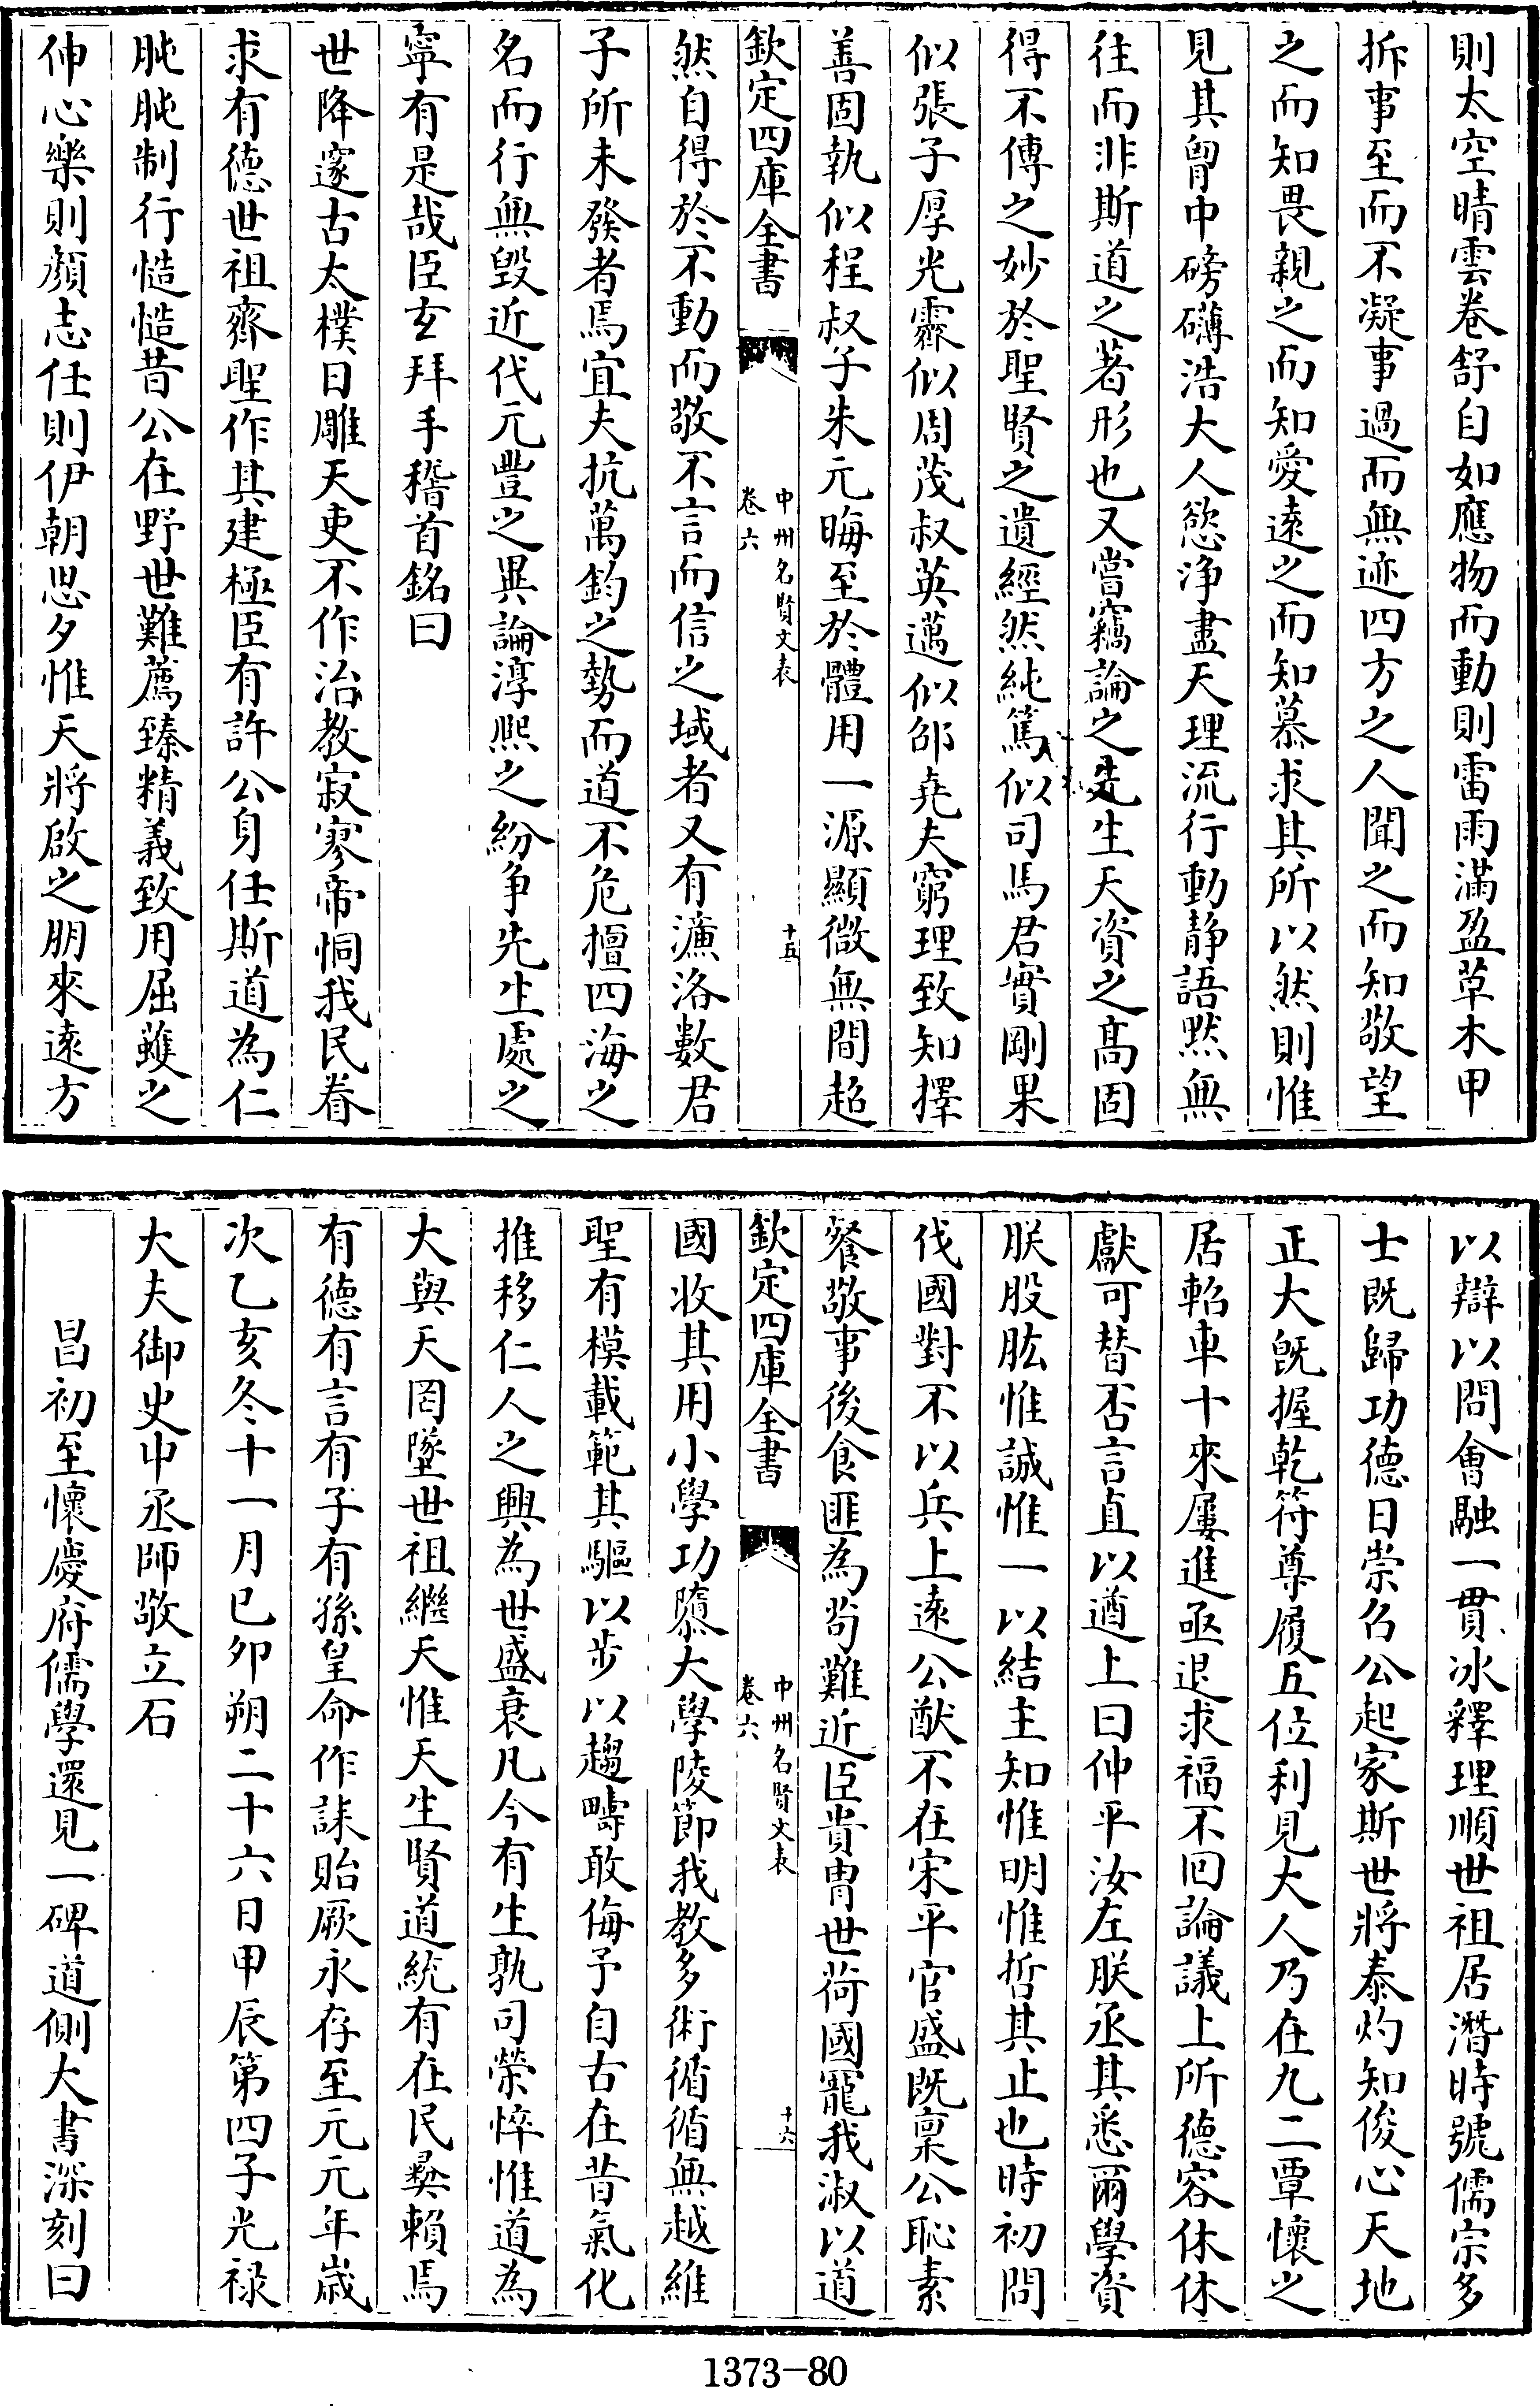 則太空晴雲卷舒自如應物而動則雷雨滿盈草木甲
拆事至而不凝事過而無迹四方之人聞之而知敬望
之而知畏親之而知愛遠之而知慕求其所以然則惟
見其胷中磅礴浩大人慾浄盡天理流行動靜語黙無
往而非斯道之著形也又嘗竊論之先生天資之髙固
得不傳之妙於聖賢之遺經然純篤似司馬君實剛果
似張子厚光霽似周茂叔英邁似邵堯夫窮理致知擇
善固執似程叔子朱元晦至於體用一源顯微無間超
欽定四庫全書
中州名賢文表
卷六
十五
然自得於不動而敬不言而信之域者又有濂洛數君
子所未發者焉宜夫抗萬鈞之勢而道不危擅四海之
名而行無毁近代元豐之異論淳熙之紛争先生處之
寧有是哉臣玄拜手稽首銘曰
世降邃古太樸日雕天吏不作治教寂寥帝恫我民眷
求有德世祖齊聖作其建極臣有許公身任斯道為仁
肫肫制行慥慥昔公在野世難薦臻精義致用屈蠖之
伸心樂則顔志任則伊朝思夕惟天將啟之朋來逺方
以辯以問會融一貫冰釋理順世祖居潛時號儒宗多
士既歸功德日崇名公起家斯世將泰灼知俊心天地
正大旣握乾符尊履五位利見大人乃在九二覃懷之
居軺車十來屢進亟退求福不回論議上所德容休休
獻可替否言直以遒上曰仲平汝左朕丞其悉爾學資
朕股肱惟誠惟一以結主知惟明惟哲其止也時初問
伐國對不以兵上逺公猷不在宋平官盛既稟公恥素
餐敬事後食匪為茍難近臣貴胄世荷國寵我淑以道
欽定四庫全書
中州名賢文表
卷六
十六
國收其用小學功隳大學陵節我教多術循循無越維
聖有模載範其驅以步以趨疇敢侮予自古在昔氣化
推移仁人之興為世盛衰凡今有生孰司榮悴惟道為
大與天罔墜世祖繼天惟天生賢道統有在民彝賴焉
有德有言有子有孫皇命作誄貽厥永存至元元年嵗
次乙亥冬十一月已卯朔二十六日甲辰第四子光禄
大夫御史中丞師敬立石
昌初至懷慶府儒學還見一碑道側大書深刻曰
1373-80